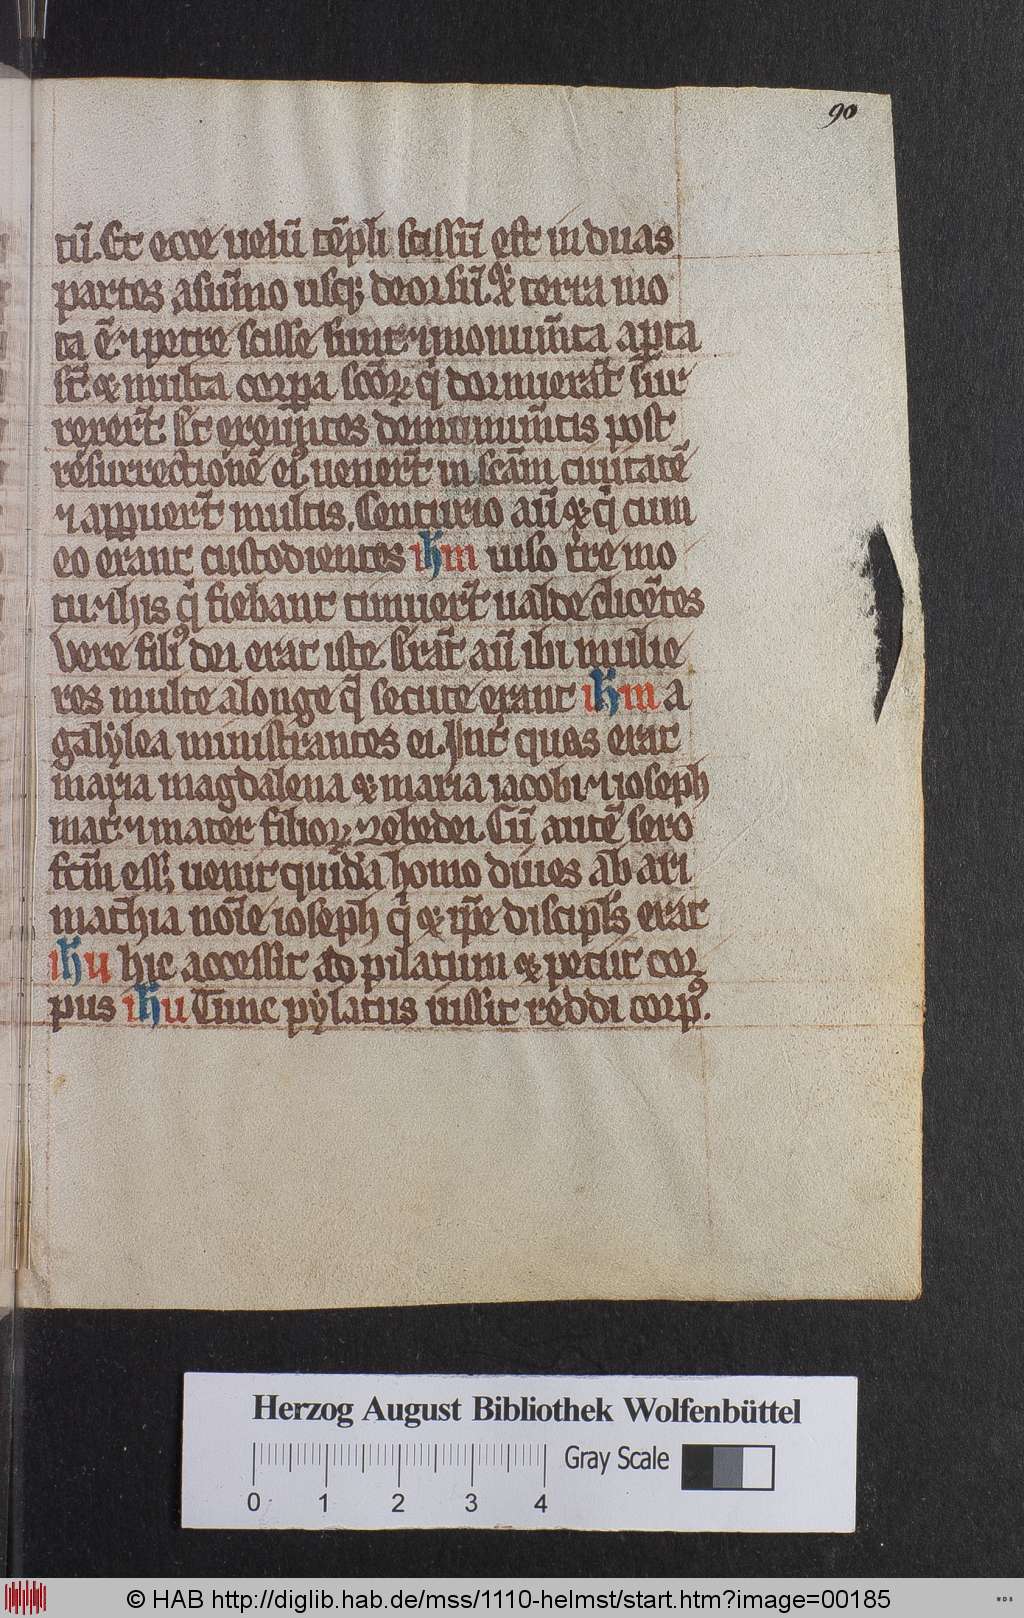 90
tū. Et ecce uelū tēpli scissū est in duas
partes asūmo usq; deorsū. & terra mo
ta ē. ⁊ petre scisse sunt. ⁊ monumīta apta
st̄. & multa corpa scōꝝ q̄ dormierāt sur
rexert̄. Et exeūntes de monumītis post
resurrectionē eiꝰ uenert̄ in scām ciuitatē
⁊ apparuert̄ multis. Centurio aū & q̄ cum
eo erant custodientes ihm uiso t̄re mo
tu. ⁊ his q̄ fiebant timuert̄ ualde dicētes
Vere filiꝰ dei erat iste. Erāt aū ibi mulie
res multe a longe q̄ secute erant ihm a
galylea ministrantes ei. Int̄ quas erat
maria magdalena & maria iacobi. ⁊ ioseph
mat̄. ⁊ mater filioꝝ zebedei. Cū autē sero
fcm̄ ess; uenit quidā homo diues ab ari
mathia noīe ioseph q̄ & ip̄e discipls̄ erat
ihu hic accessit ad pilatum & petiit cor
pus ihu Tunc pylatus iussit reddi corpꝰ.
Herzog August Bibliothek Wolfenbüttel
Gray Scale
0 1 2 3 4
© HAB http://diglib.hab.de/mss/1110-helmst/start.htm?image=00185